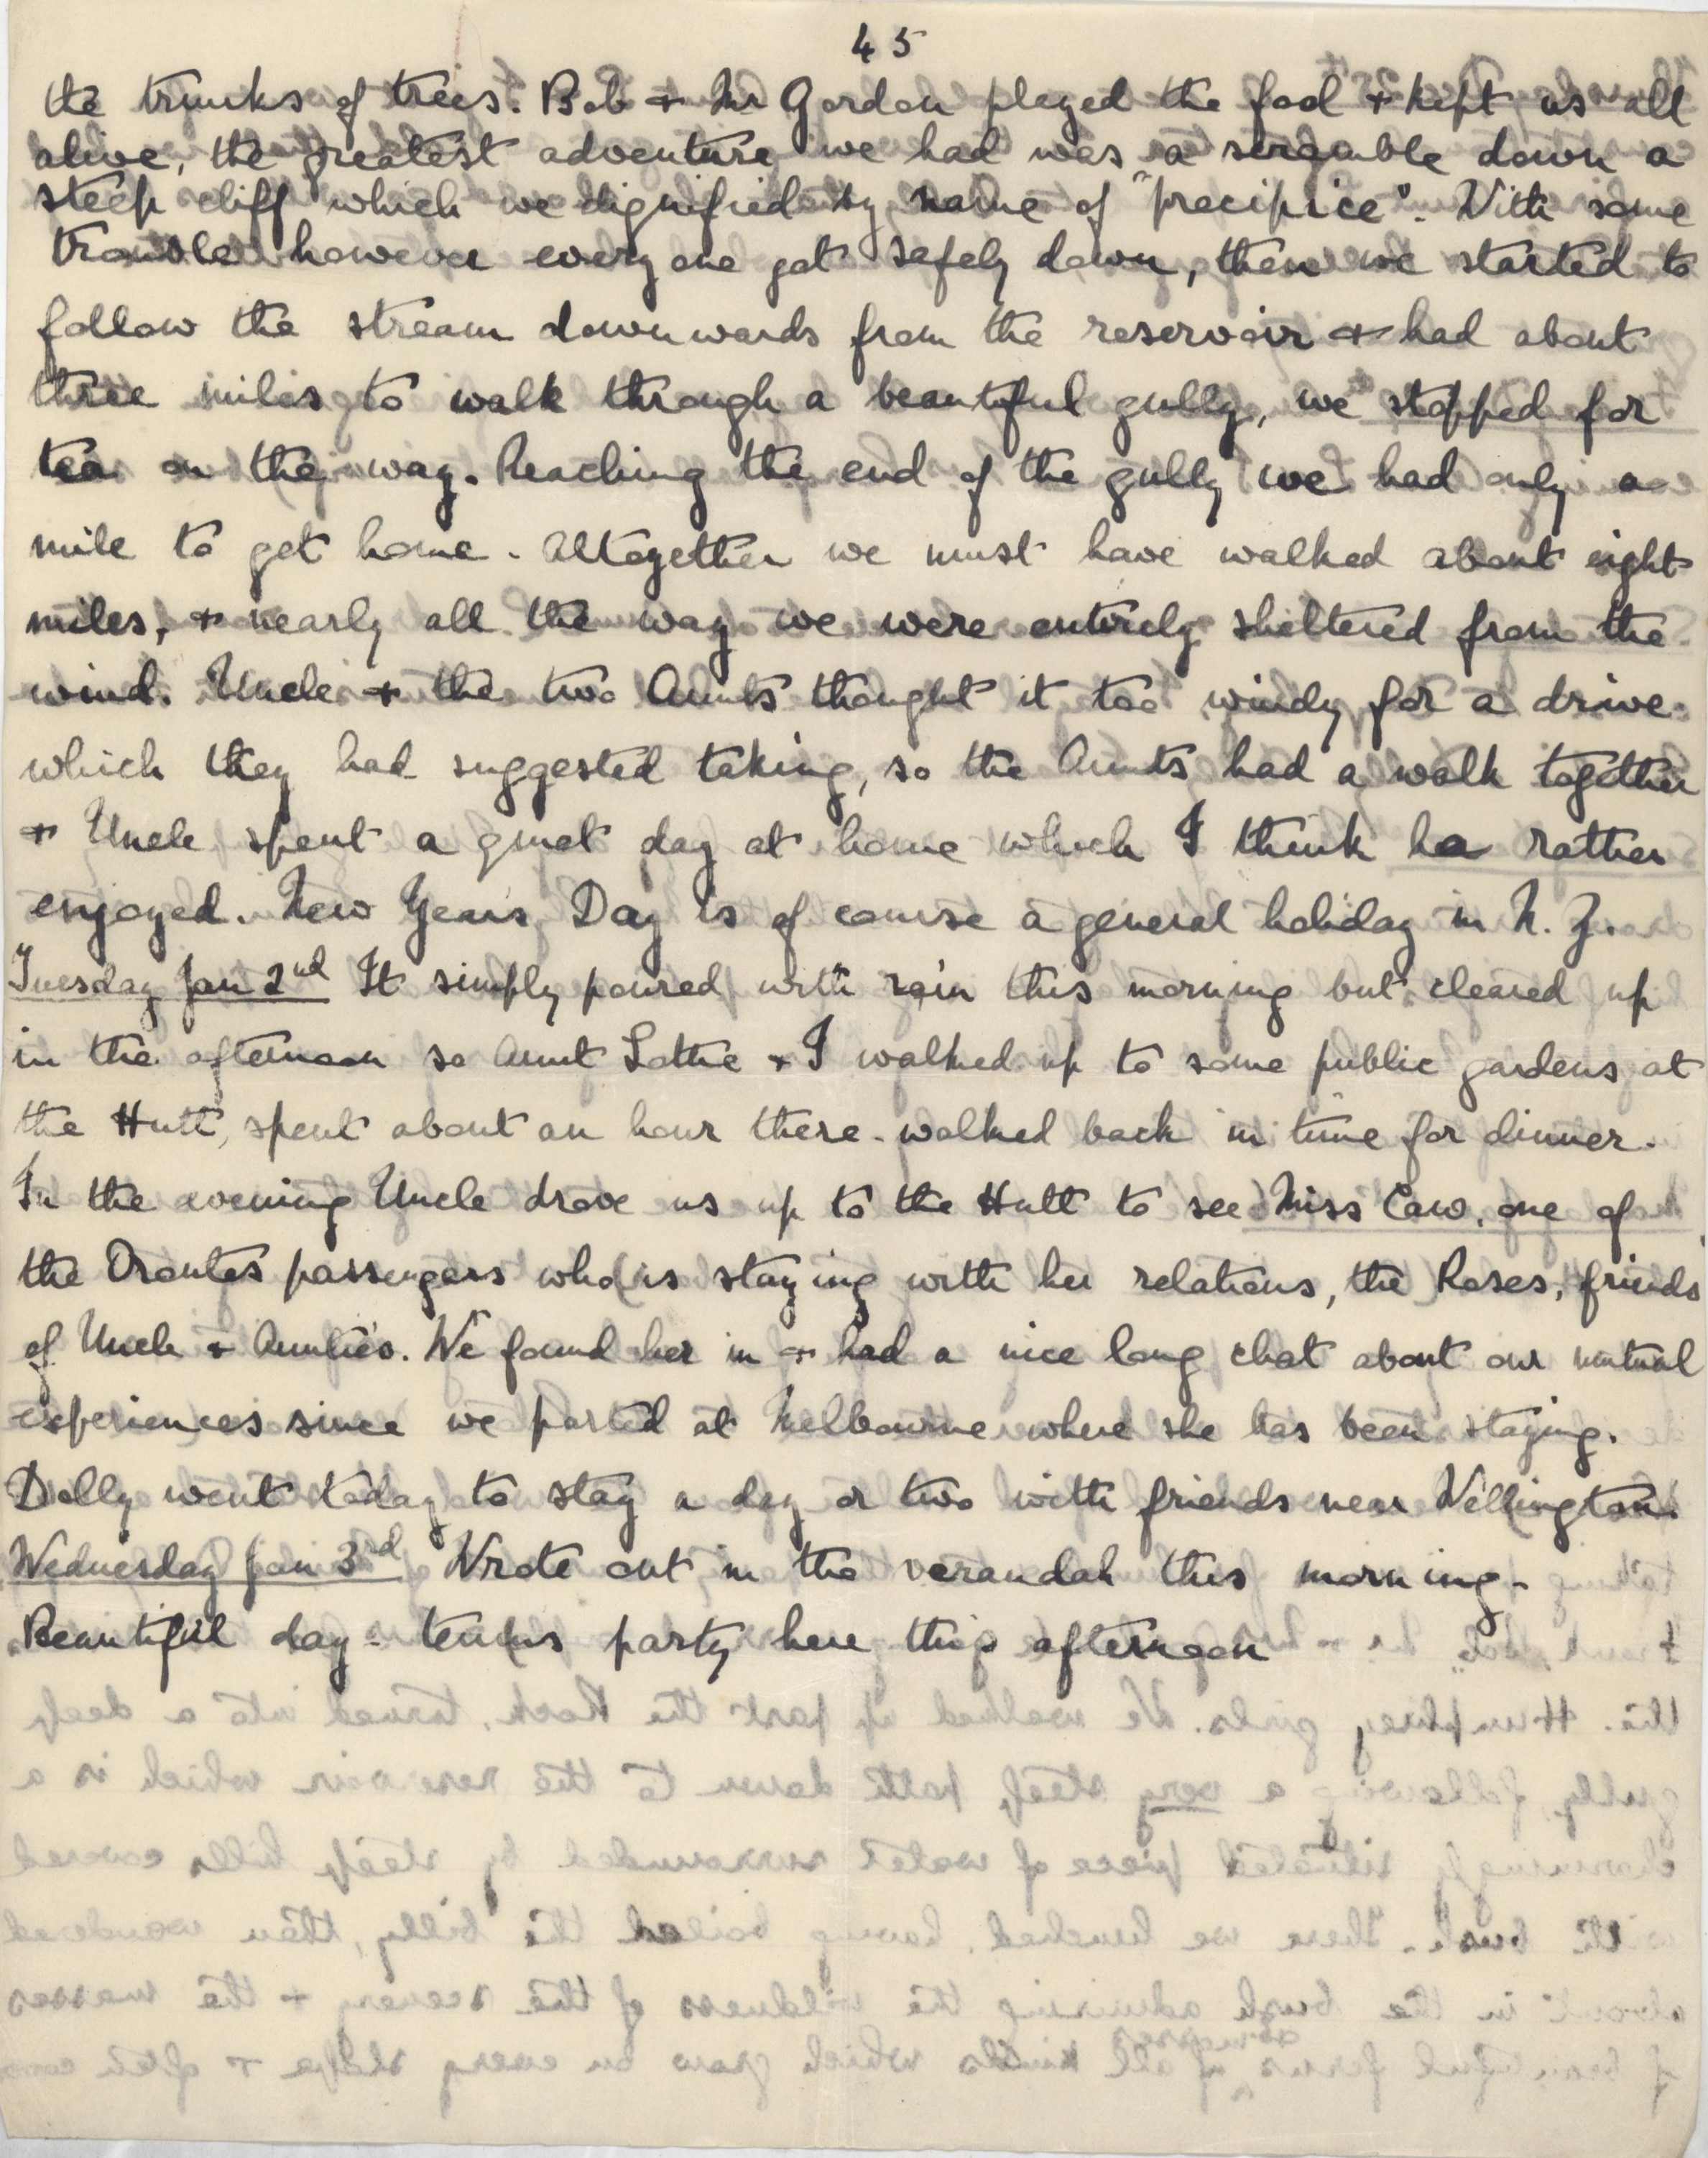 45
the trunks of trees. Bob + Mr Gordon played the fool + kept us all
alive, the greatest adventure we had was a scramble down a
steep cliff which we dignified by name of "precipice". With some
trouble however every one got safely down, then we started to
follow the stream downwards from the reservoir + had about
three miles to walk through a beautiful gully, we stopped for
tea on the way. Reaching the end of the gully we had only a
mile to get home - Altogether we must have walked about eight
miles, + nearly all the way we were entirely sheltered from the
wind. Uncle + the two Aunts thought it too windy for a drive
which they had suggested taking, so the Aunts had a walk together
+ Uncle spent a quiet day at home which I think he rather
enjoyed. New Years Day is of course a general holiday in N. Z.
Tuesday Jan 2nd It simply poured with rain this morning but cleared up
in the afternoon so Aunt Lottie + I walked up to some public gardens at
the Hutt, spent about an hour there - walked back in time for dinner.
In the evening Uncle drove us up to the Hutt to see Miss Caw, one of
the Orontes passengers who is staying with her relations, the Roses, friends
of Uncle + Auntie's. We found her in + had a nice long chat about our mutual
experiences since we parted at Melbourne where she has been staying.
Dolly went today to stay a day or two with friends near Wellington.
Wednesday Jan 3rd Wrote out in the verandah this morning -
Beautiful day - tennis party here this afternoon